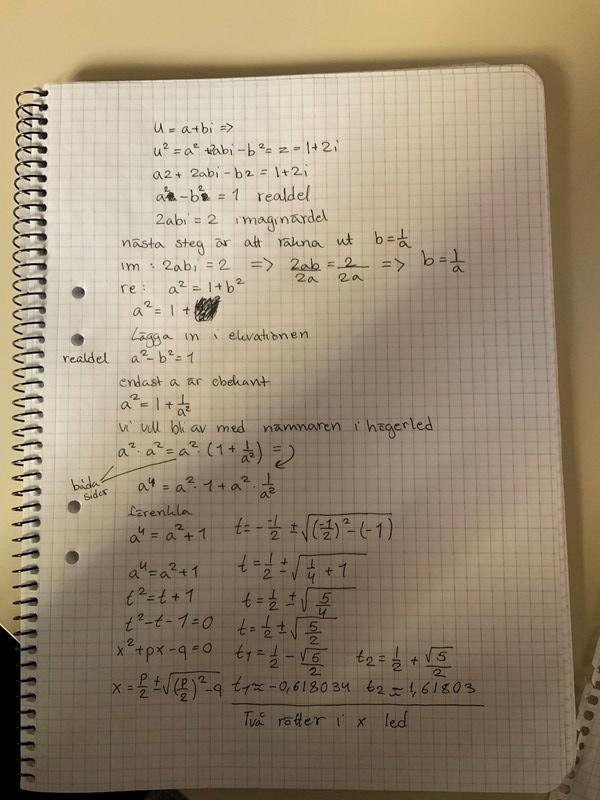 u = a+bi =>
u² = a² + 2abi - b² = z = 1+2i
a2 + 2abi - b2 = 1+2i
a² - b² = 1 realdel
2abi = 2 imaginärdel
nästa steg är att räkna ut b = 1/a
im : 2abi = 2 => 2ab/2a = 2/2a => b = 1/a
re : a² = 1+b²
a² = 1 +
Lägga in i ekvationen
realdel a²-b²=1
endast a är obekant
a² = 1 + 1/a²
vi vill bli av med nämnaren i högerled
a² · a² = a² · (1 + 1/a²) =
båda sidor
a⁴ = a² · 1 + a² · 1/a²
förenkla
a⁴ = a² + 1
a⁴ = a² + 1
t² = t + 1
t² - t - 1 = 0
x² + px - q = 0
x = p/2 ± √((p/2)² - q)
t = - -1/2 ± √((-1/2)² - (-1))
t = 1/2 ± √(1/4 + 1)
t = 1/2 ± √(5/4)
t = 1/2 ± √(5/2)
t₁ = 1/2 - √5/2 t₂ = 1/2 + √5/2
t₁ ≈ -0,618034 t₂ ≈ 1,61803
Två rötter i x led